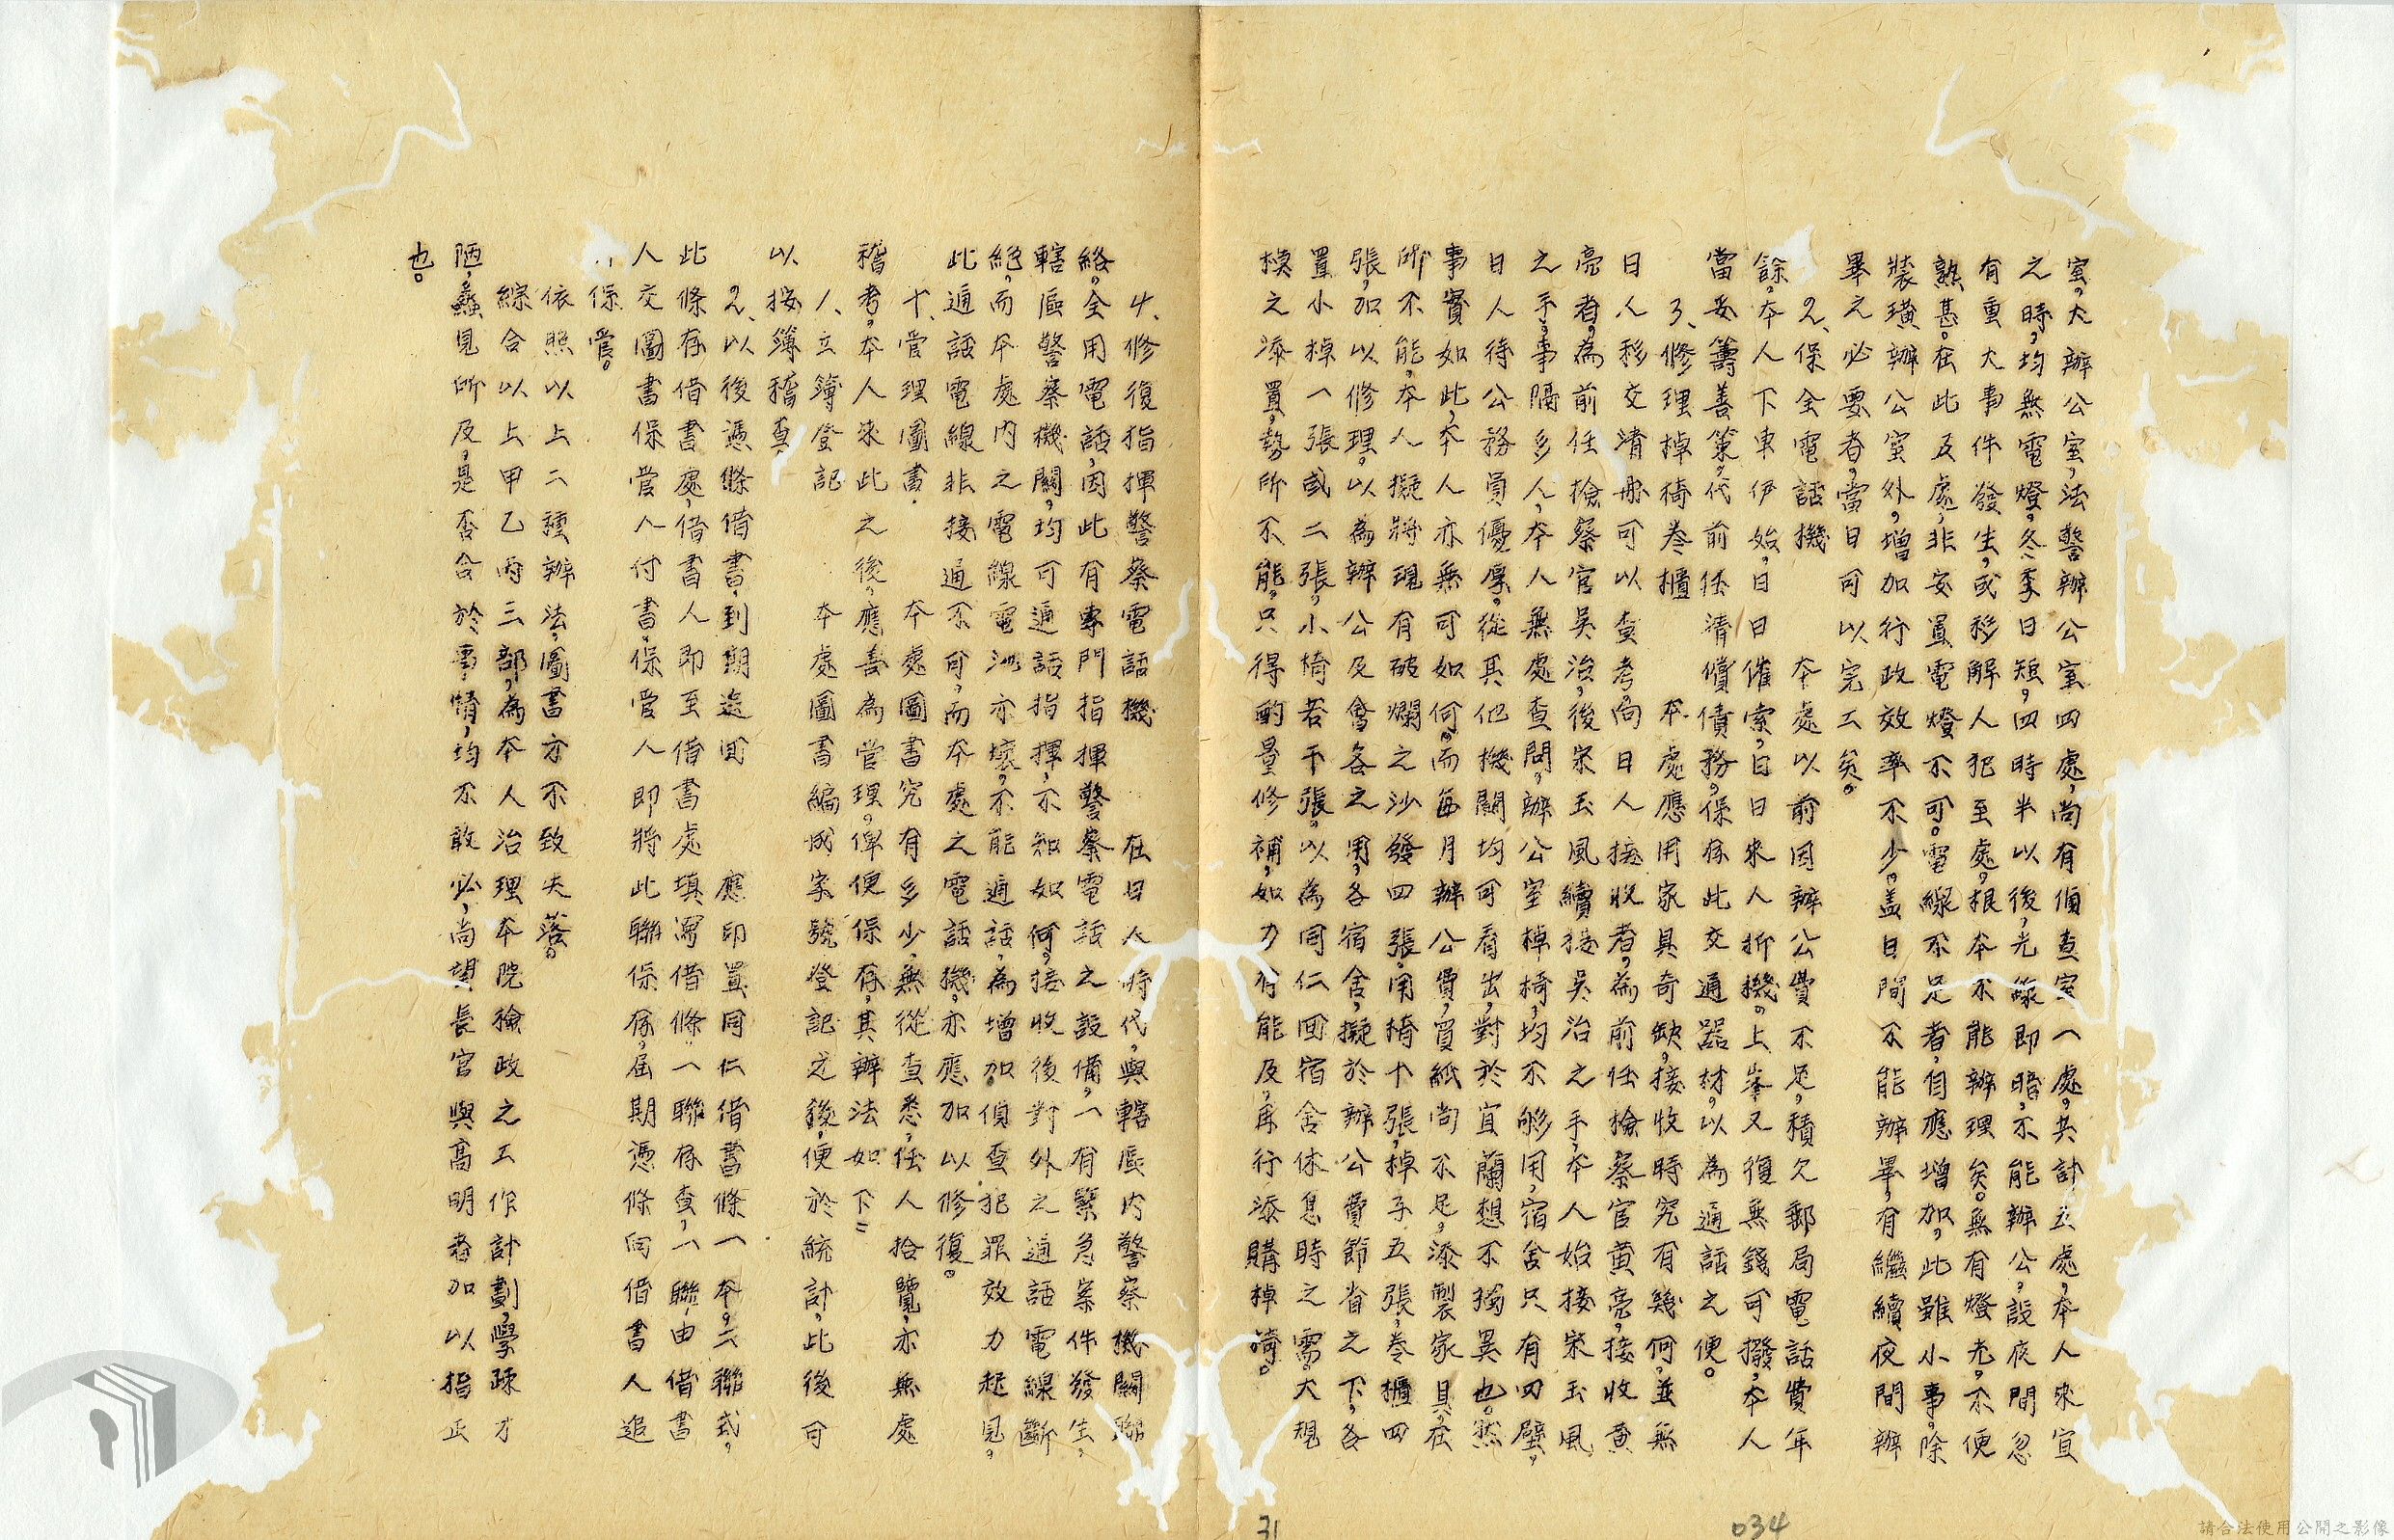 室，大辦公室，法警辦公室四處，尚有偵查室一處，共計五處，本人來宜
之時，均無電燈，冬季日短，四時半以後，光線即暗，不能辦公，設夜間忽
有重大事件發生，或移解人犯至處，根本不能辦理矣。無有燈光，不便
熟甚。在此及處，非安置電燈不可。電線不足者，自應增加，此雖小事，除
裝璜辦公室外，增加行政效率不少，蓋日間不能辦畢，有繼續夜間辦
畢之必要者，當日可以完工矣。
2、保全電話機　本處以前因辦公費不足，積欠郵局電話費年
餘，本人下車伊始，日日催索，日日來人拆機，上峯又復無錢可撥，本人
當妥籌善策，代前任清償債務，保存此交通器材，以為通話之便。
3、修理棹椅卷櫃　本處應用家具奇缺，接收時究有幾何，並無
日人移交清册可以查考，向日人接收者，為前任檢察官黃亮，接收黃
亮者，為前任檢察官吳治，後宋玉風續接吳治之手，本人始接宋玉風
之手，事隔多人，本人無處查問，辦公室棹椅，均不夠用，宿舍只有四壁，
日人待公務員優厚，從其他機關均可看出，對於宜蘭想不獨異也。然
事實如此，本人亦無可如何，而每月辦公費，買紙尚不足，添製家具，在
所不能，本人擬將現有破爛之沙發四張，用椅十張，棹子五張，卷櫃四
張，加以修理，以為辦公及會客之用，各宿舍，擬於辦公費節省之下，各
置小棹一張或二張，小椅若干張，以為同仁回宿舍休息時之需，大規
模之添置，勢所不能，只得酌量修補，如力有能及，再行添購棹椅。
4、修復指揮警察電話機　在日人時代，與轄區內警察機關聯
絡，全用電話，因此有專門指揮警察電話之設備，一有緊急案件發生，
轄區警察機關，均可通話指揮，不知如何，接收後對外之通話電線斷
絕，而本處內之電線電池亦壞，不能通話，為增加偵查犯罪效力起見，
此通話電線非接通不可，而本處之電話機，亦應加以修復。
十、管理圖書．　本處圖書究有多少，無從查悉，任人拾覽，亦無處
稽考，本人來此之後，應善為管理，俾便保存，其辦法如下：
1、立簿登記　本處圖書編成字號登記之後，便於統計，此後可
以按簿稽查
2、以後憑條借書，到期追回　應印置同仁借書條一本，二聯式，
此條存借書處，借書人即至借書處填寫借條，一聯存查，一聯由借書
人交圖書保管人付書，保管人即將此聯保存，屆期憑條向借書人追
保管。
依照以上二種辦法，圖書亦不致失落。
綜合以上甲乙丙三部，為本人治理本院檢政之工作計劃，學疎才
陋，蠡見所及，是否合於事情，均不敢必，尚望長官與高明者加以指正
也。
31
034
請合法使用公開之影像